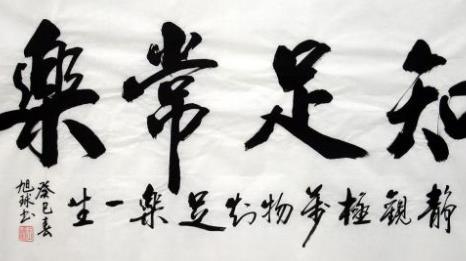 知足常樂
静觀極萬物知足樂一生
癸巳春
旭球书